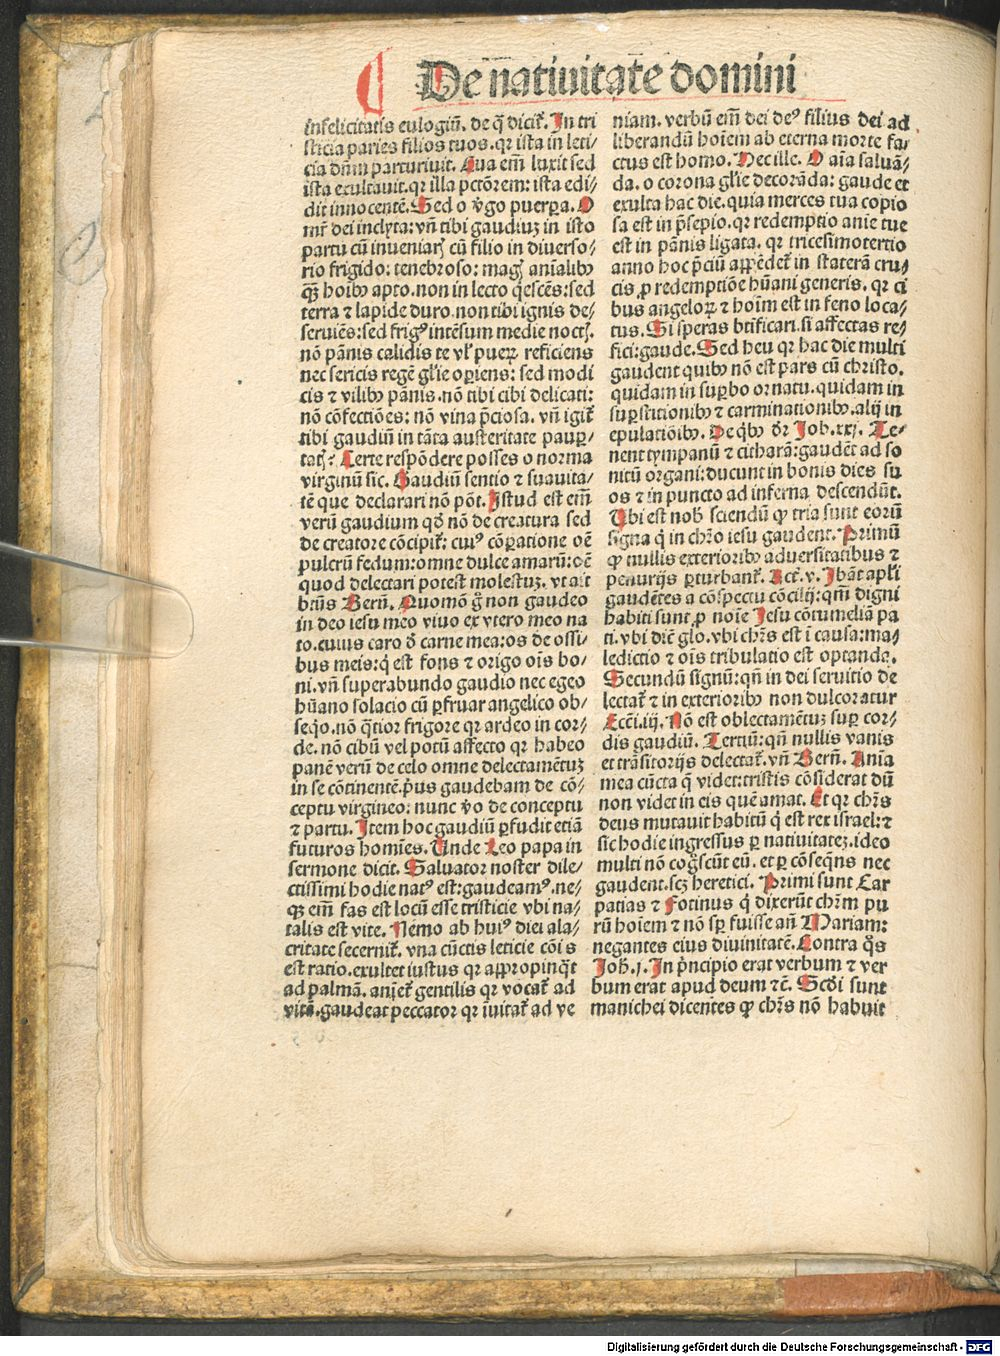 De natiuitate domini
infelicitatis eulogiũ. de q̃ dicit᷑. In tri
sticia paries filios tuos. qr ista in leti⸗
cia dñm parturiuit. Eua em̃ luxit sed
ista exultauit. qr illa pctõrem: ista edi⸗
dit innocentẽ. Sed o ṽgo puerꝑa. O
mr̃ dei inclyta: vñ tibi gaudiuꝫ in isto
partu cũ inueniarꝭ cũ filio in diuerso⸗
rio frigido: tenebroso: magꝭ aĩalibꝰ
qꝫ̃ hoĩbꝰ apto. non in lecto q̃escẽs: sed
terra ⁊ lapide duro. non tibi ignis de⸗
seruiẽs: sed frigꝰ intẽsum medie noctꝭ.
nõ pãnis calidis te vl᷑ puerꝝ reficiens
nec sericis regẽ gl̃ie oꝑiens: sed modi
cis ⁊ vilibꝰ pãnis. nõ tibi cibi delicati:
nõ cõfectiões: nõ vina p̃ciosa. vñ igit᷑
tibi gaudiũ in tãta austeritate pauꝑ⸗
tatꝭ? Certe respõdere posses o norma
virginũ sic. Gaudiũ sentio ⁊ suauita⸗
tẽ que declarari nõ põt. Istud est em̃
verũ gaudium qd̛ nõ de creatura sed
de creatore cõcipit᷑: cuiꝰ cõꝑatione oẽ
pulcrũ fedum: omne dulce amarũ: oẽ
quod delectari potest molestuꝫ. vt ait
btũs Berñ. Quomõ g̊ non gaudeo
in deo iesu meo viuo ex vtero meo na
to. cuius caro d̛ carne mea: os de ossi⸗
bus meis: q̇ est fons ⁊ origo oĩs bo⸗
ni. vñ superabundo gaudio nec egeo
hũano solacio cũ ꝑfruar angelico ob⸗
seq̇o. nõ q̃tior frigore qr ardeo in cor⸗
de. nõ cibũ vel potũ affecto qr habeo
panẽ verũ de celo omne delectamẽtuꝫ
in se cõtinentẽ. p̃us gaudebam de cõ⸗
ceptu virgineo: nunc ṽo de conceptu
⁊ partu. Item hoc gaudiũ ꝑfudit etiã
futuros homĩes. Unde Leo papa in
sermone dicit. Saluator noster dile⸗
ctissimi hodie natꝰ est: gaudeamꝰ. ne⸗
qꝫ em̃ fas est locũ esse tristicie vbi na⸗
talis est vite. Nemo ab huiꝰ diei ala⸗
critate secernit᷑. vna cũctis leticie cõis
est ratio. exultet iustus qr appropinq̃t
ad palmã. anĩet᷑ gentilis qr vocat᷑ ad
vitã. gaudeat peccator qr ĩuitat᷑ ad ve
niam. verbũ em̃ dei deꝰ filius dei ad
liberandũ hoĩem ab eterna morte fa⸗
ctus est homo. Hec ille. O aĩa saluã⸗
da. o corona gl̃ie decorãda: gaude et
exulta hac die. quia merces tua copio
sa est in p̃sepio. qr redemptio anie tue
est in pãnis ligata. qr tricesimotertio
anno hoc p̃ciũ appẽdet᷑ in staterã cru⸗
cis ꝓ redemptiõe hũani generis. qr ci
bus angeloꝝ ⁊ hoĩm est in feno loca⸗
tus. Si speras btificari. si affectas re⸗
fici: gaude. Sed heu qr hac die multi
gaudent quibꝰ nõ est pars cũ christo.
quidam in suꝑbo ornatu. quidam in
suꝑstitionibꝰ ⁊ carminationibꝰ. alij in
epulatiõibꝰ. De q̇bꝰ dr̃ Job. xxj. Te⸗
nent tympanũ ⁊ citharã: gaudẽt ad so
nitũ organi: ducunt in bonis dies su
os ⁊ in puncto ad inferna descendũt.
Ubi est nob̃ sciendũ ꝙ tria sunt eorũ
signa q̇ in chr̃o iesu gaudent. Primũ
ꝙ nullis exterioribꝰ aduersitatibus ⁊
penurijs ꝑturbant᷑. Act᷑. v. Ibãt apl̃i
gaudẽtes a cõspectu cõcilij: qm̃ digni
habiti sunt ꝓ noĩe Jesu cõtumeliã pa
ti. vbi dic̃ glo. vbi chr̃s est ĩ causa: ma⸗
ledictio ⁊ oĩs tribulatio est optanda.
Secundũ signũ: qñ in dei seruitio de
lectat᷑ ⁊ in exterioribꝰ non dulcoratur
Ecc̃i. iij. Nõ est oblectamẽtuꝫ suꝑ cor⸗
dis gaudiũ. Tertiũ: qñ nullis vanis
et trãsitorijs delectat᷑. vñ Berñ. Anĩa
mea cũcta q̃ videt: tristis cõsiderat dũ
non videt in eis quẽ amat. Et qr chr̃s
deus mutauit habitũ q̇ est rex israel: ⁊
sic hodie ingressus ꝑ natiuitateꝫ. ideo
multi nõ cog̃scũt eũ. et ꝑ cõseq̃ns nec
gaudent. scꝫ heretici. Primi sunt Car
patias ⁊ Fotinus q̇ dixerũt chr̃m pu
rũ hoĩem ⁊ nõ sꝑ fuisse añ Mariam:
negantes eius diuinitatẽ. Contra q̊s
Joh̃. j. In p̃ncipio erat verbum ⁊ ver
bum erat apud deum ⁊c̃. Scd̛i sunt
manichei dicentes ꝙ chr̃s nõ habuit
Digitalisierung gefördert durch die Deutsche Forschungsgemeinschaft - DFG